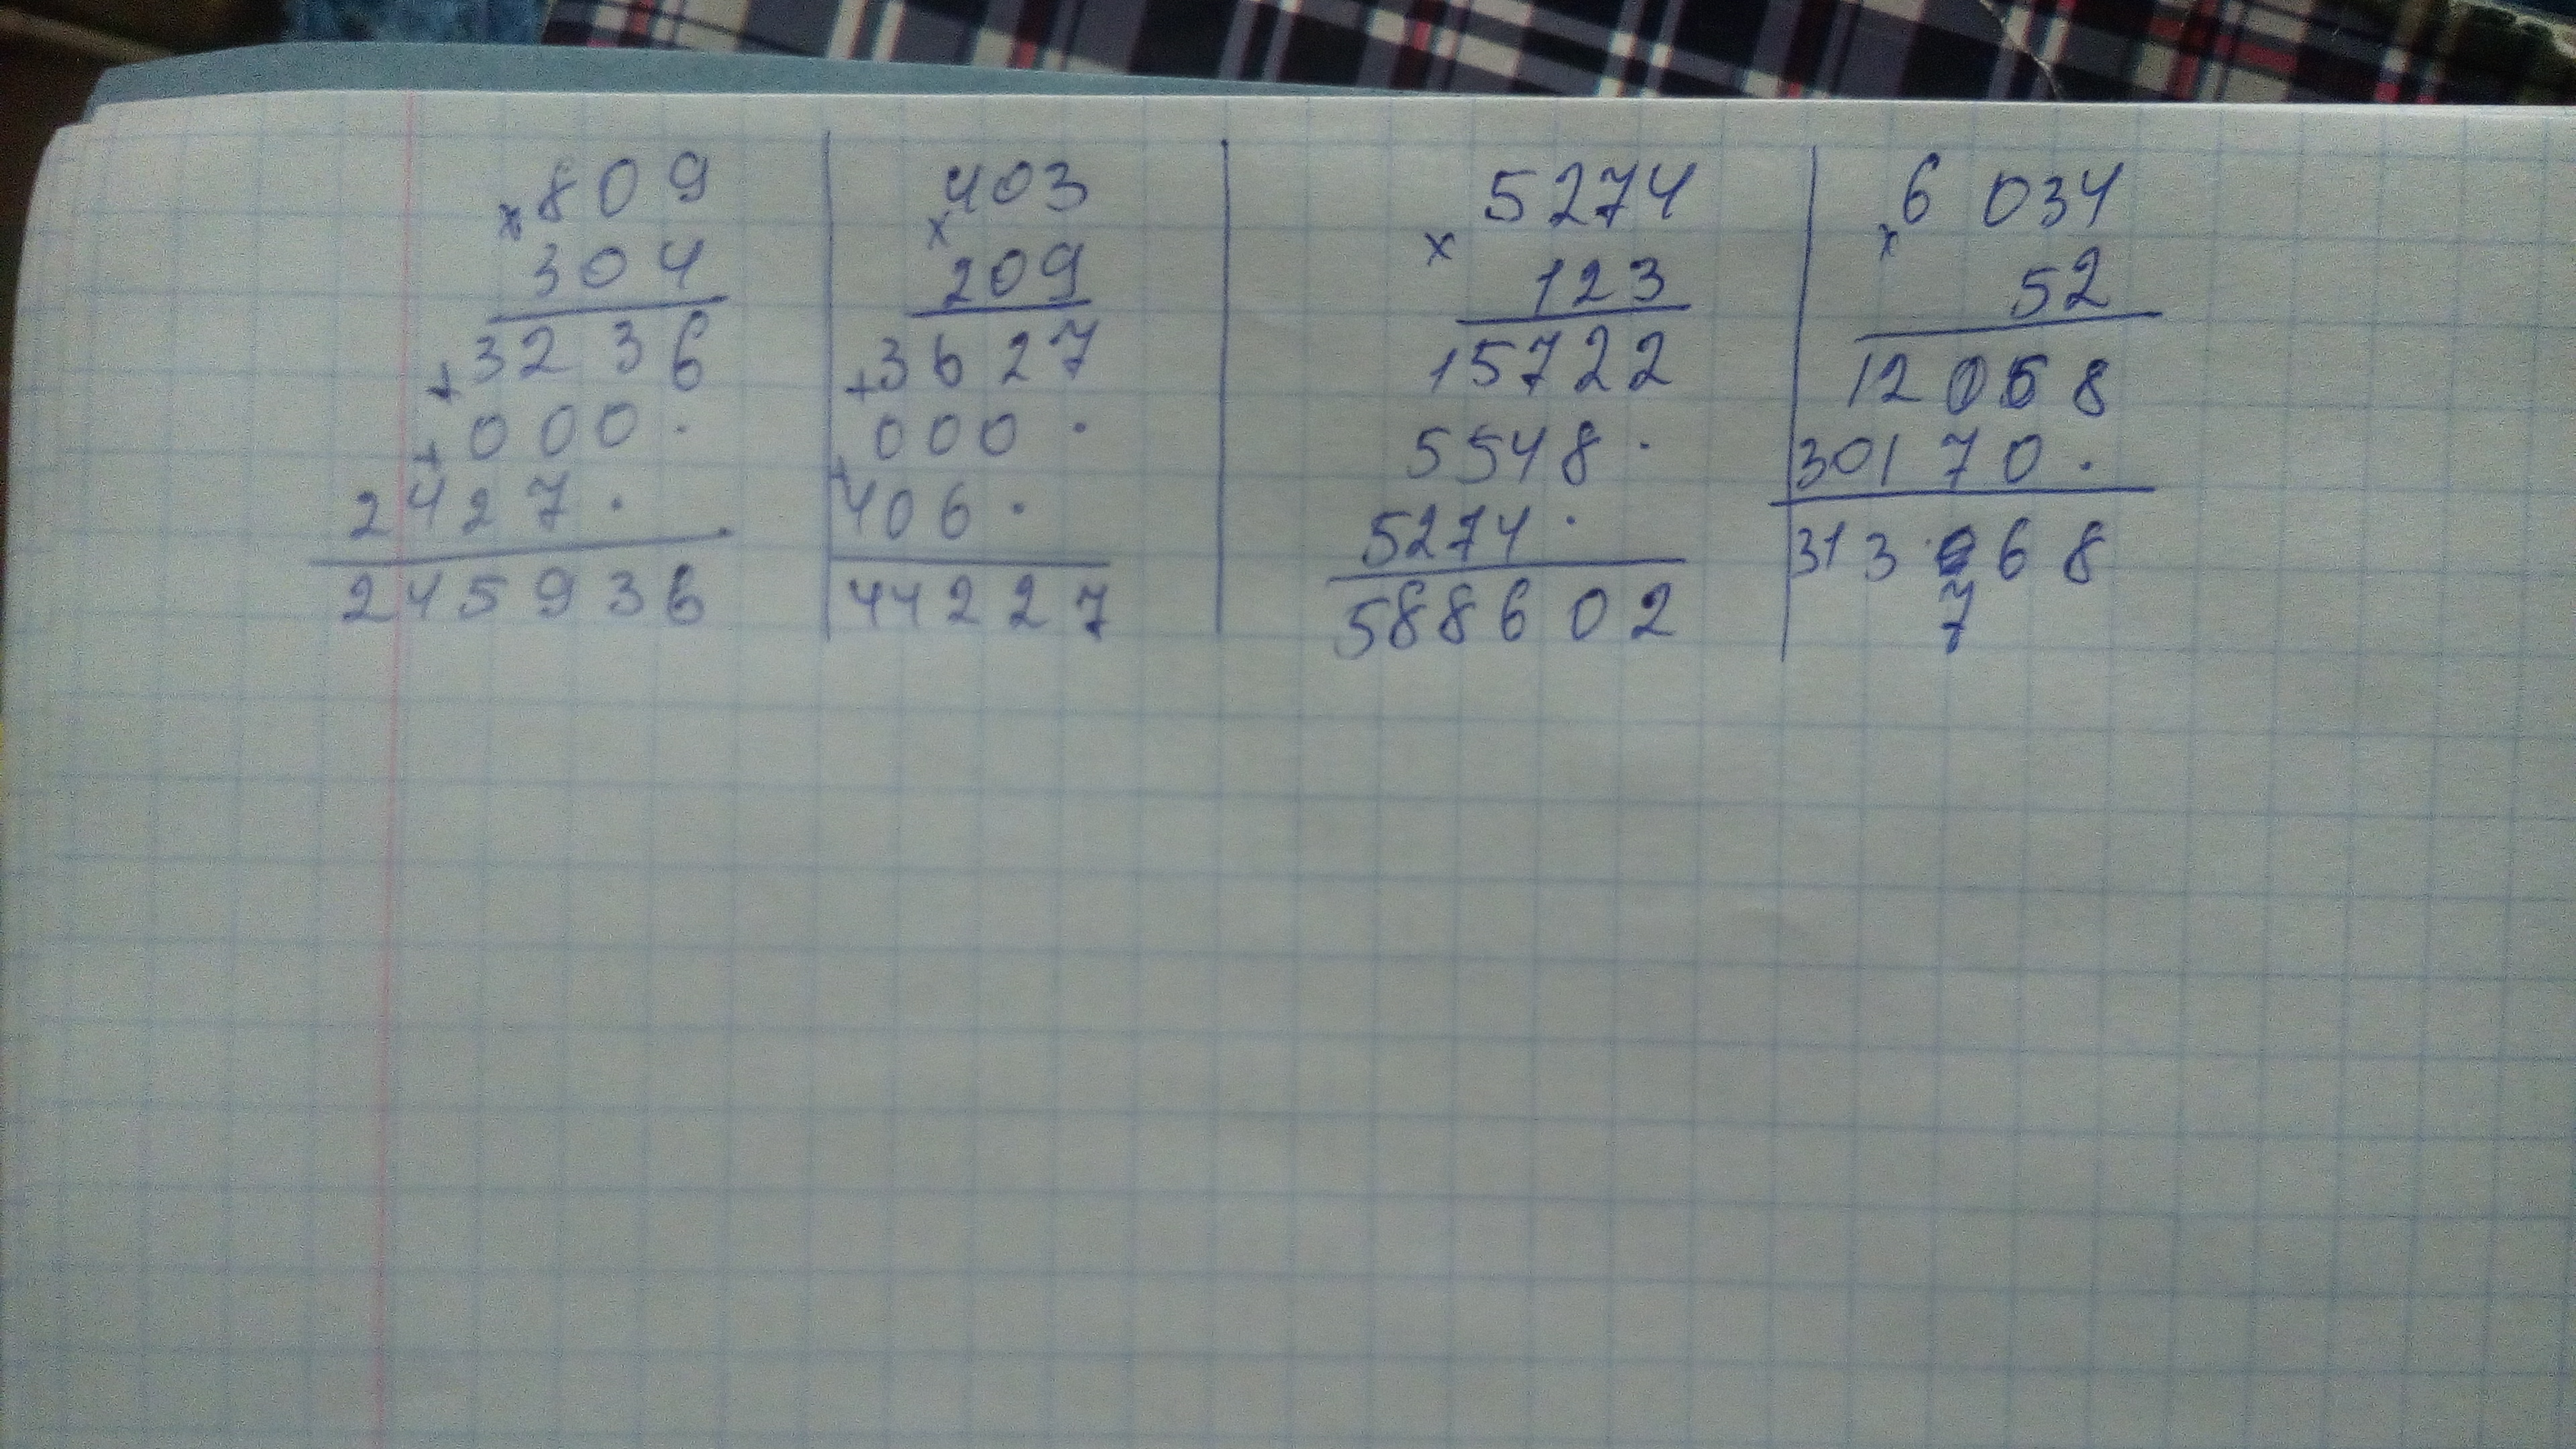 × 809
304
+ 3236
+ 000 .
2427 .
245936
× 403
209
+ 3627
+ 000 .
406 .
44227
× 5274
123
15722
5548 .
5274 .
588602
× 6 034
52
12068
30170 .
313 68
7